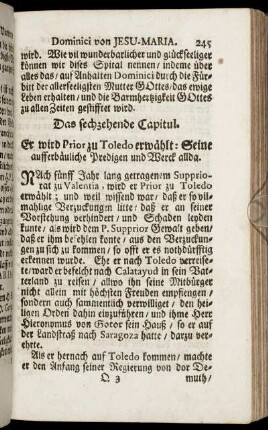 Dominici von JESU-MARIA. 245
wird. Wie vil wunderbarlicher und glückseeliger
können wir dises Spital nennen, indeme über
alles das, auf Anhalten Dominici durch die Für-
bitt der allerseeligsten Mutter GOttes, das ewige
Leben erhalten, und die Barmhertzigkeit GOttes
zu allen Zeiten gestifftet wird.
Das sechzehende Capitul.
Er wird Prior zu Toledo erwählt: Seine
aufferbäuliche Predigen und Werck allda.
NAch fünff Jahr lang getragenem Supprio-
rat zu Valentia, wird er Prior zu Toledo
erwählt; und weil wissend war, daß er so vil-
mahlige Verzuckungen litte, daß er an seiner
Vorstehung verhindert, und Schaden leyden
kunte, als wird dem P. Supprior Gewalt geben,
daß er ihm befehlen konte, aus den Verzuckun-
gen zu sich zu kommen, so offt er es nothdürfftig
erkennen wurde. Ehe er nach Toledo verreise-
te, ward er befelcht nach Calatayud in sein Vat-
terland zu reisen, allwo ihn seine Mitbürger
nicht allein mit höchsten Freuden empfiengen,
sondern auch sammentlich verwilliget, den hei-
ligen Orden dahin einzuführen, und ihme Herr
Hieronymus von Gotor sein Hauß, so er auf
der Landstraß nach Saragoza hatte, darzu ver-
ehrte.
Als er hernach auf Toledo kommen, machte
er den Anfang seiner Regierung von der De-
Q 3 muth,